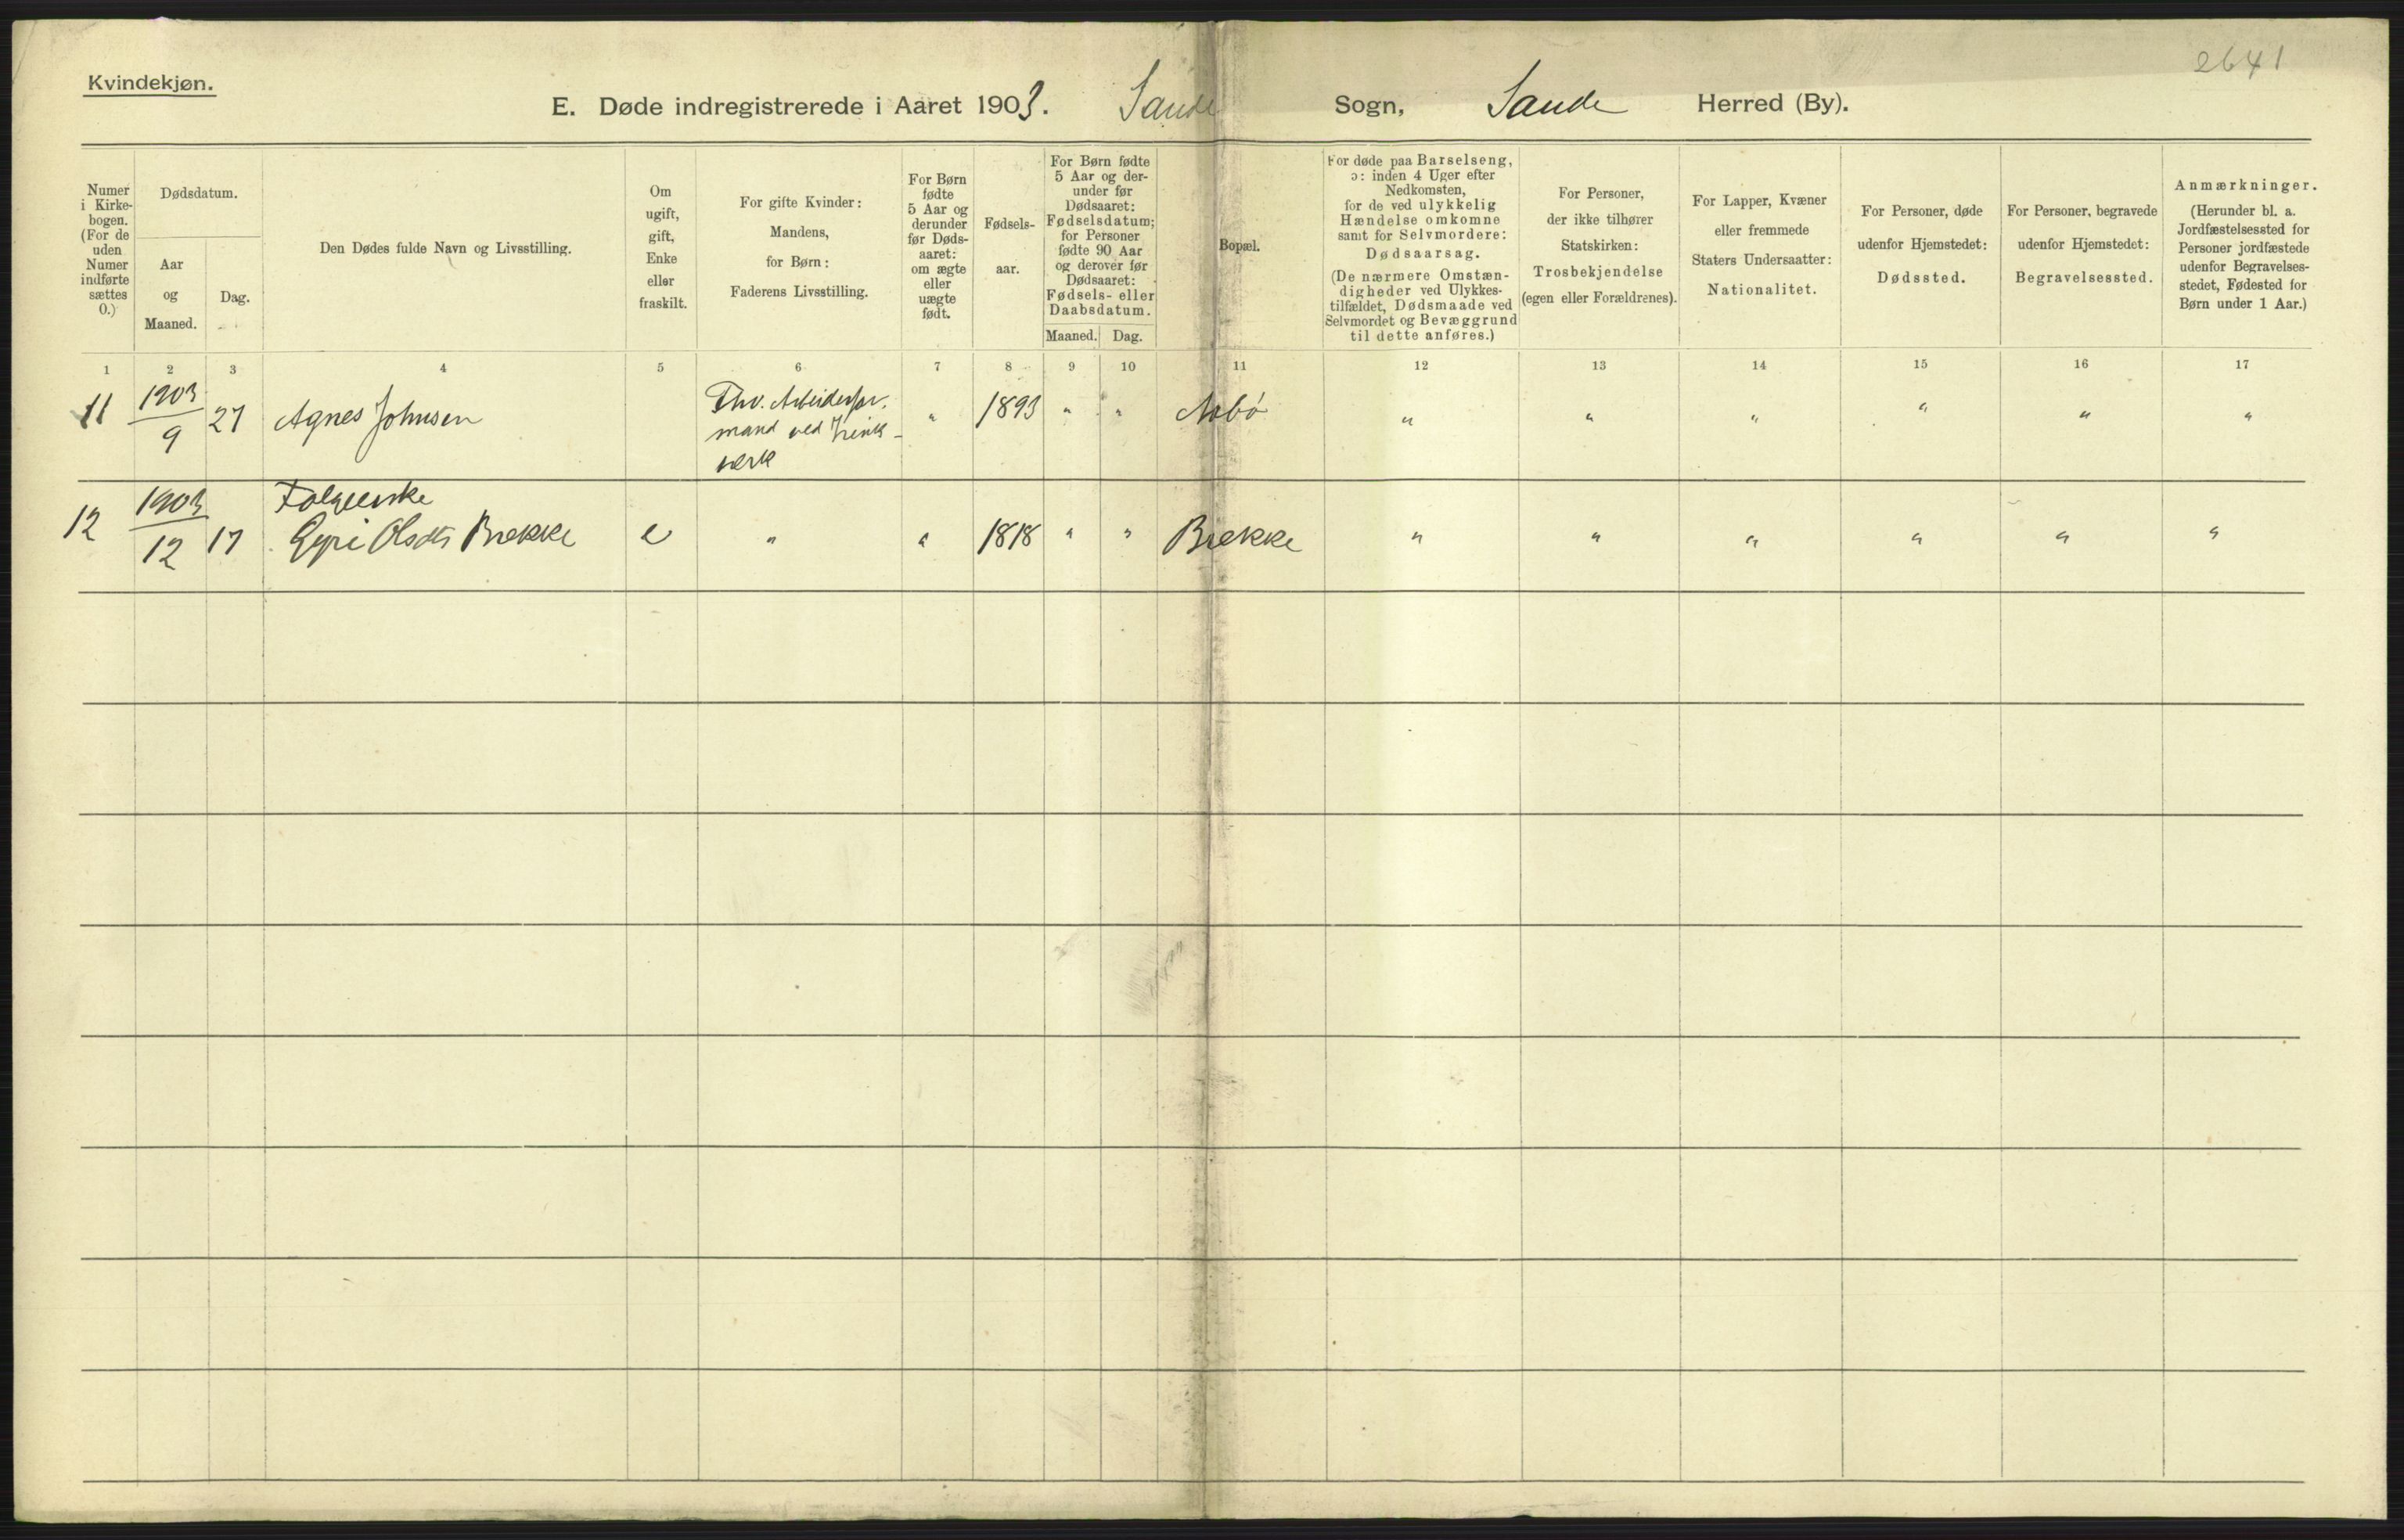 Kvindekjøn.
2641
E. Døde indregistrerede i Aaret 1903. Sande Sogn, Sande Herred (By).
Numer
i Kirke-
bogen.
(For de
uden
Numer
indførte
sættes
0.)
Dødsdatum.
Aar
og
Maaned.
Dag.
Den Dødes fulde Navn og Livsstilling.
Om
ugift,
gift,
Enke
eller
fraskilt.
For gifte Kvinder:
Mandens,
for Børn:
Faderens Livsstilling.
For Børn
fødte
5 Aar og
derunder
før Døds-
aaret:
om ægte
eller
uægte
født.
Fødsels-
aar.
For Børn fødte
5 Aar og der-
under før
Dødsaaret:
Fødselsdatum;
for Personer
fødte 90 Aar
og derover før
Dødsaaret:
Fødsels- eller
Daabsdatum.
Maaned. Dag.
Bopæl.
For døde paa Barselseng,
ɔ: inden 4 Uger efter
Nedkomsten,
for de ved ulykkelig
Hændelse omkomne
samt for Selvmordere:
Dødsaarsag.
(De nærmere Omstæn-
digheder ved Ulykkes-
tilfældet, Dødsmaade ved
Selvmordet og Bevæggrund
til dette anføres.)
For Personer,
der ikke tilhører
Statskirken:
Trosbekjendelse
(egen eller Forældrenes).
For Lapper, Kvæner
eller fremmede
Staters Undersaatter:
Nationalitet.
For Personer, døde
udenfor Hjemstedet:
Dødssted.
For Personer, begravede
udenfor Hjemstedet:
Begravelsessted.
Anmærkninger.
(Herunder bl. a.
Jordfæstelsessted for
Personer jordfæstede
udenfor Begravelses-
stedet, Fødested for
Børn under 1 Aar.)
1 2 3 4 5 6 7 8 9 10 11 12 13 14 15 16 17
11 1903/9 27 Agnes Johnsen
mand ved Zink-
verk
" 1893 " " " " " " " "
12 1903/12 17
Brekke e " " 1818 " " Brekke " " " " " "